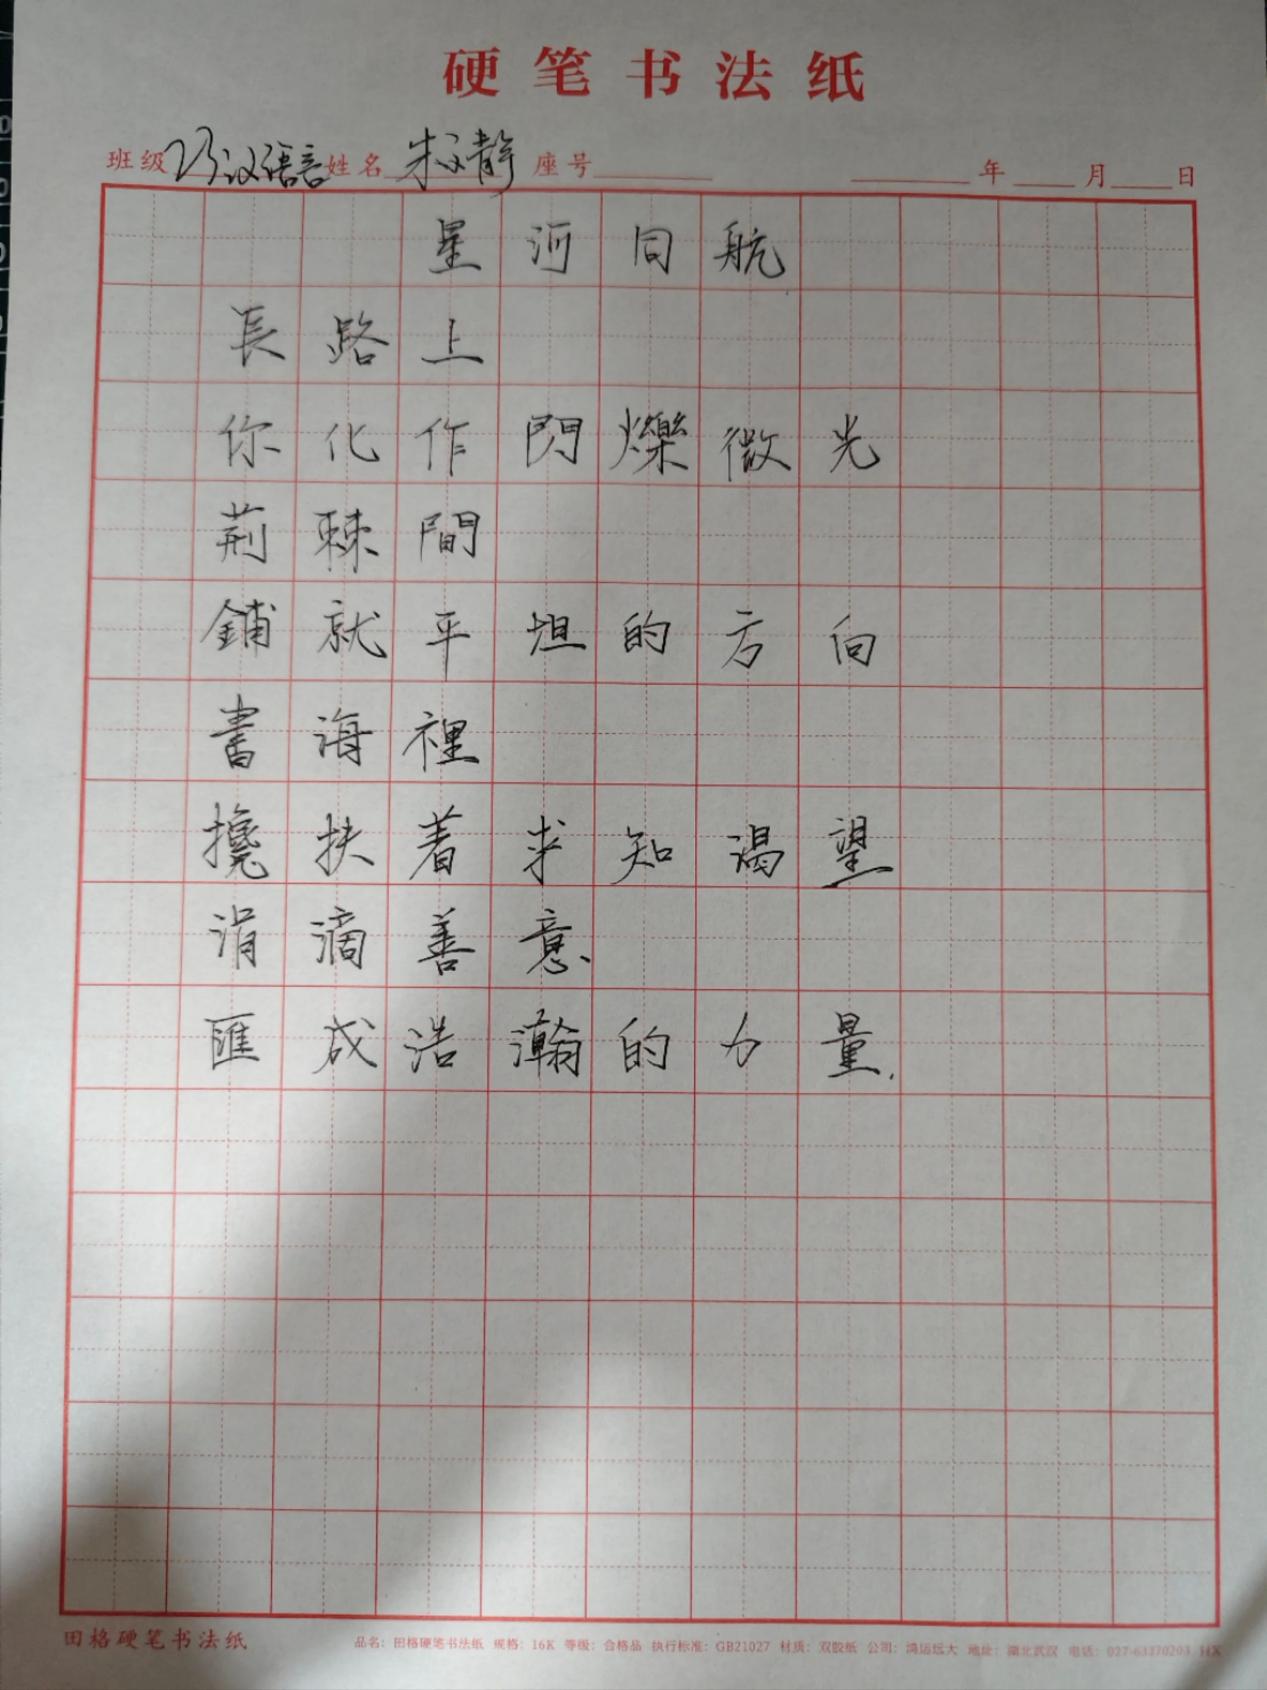 硬笔书法纸
班级 23汉语言 姓名 朱文静 座号 年 月 日
星河同航
長路上
你化作閃爍微光
荊棘間
鋪就平坦的方向
書海裡
攙扶着求知渴望
涓滴善意
匯成浩瀚的力量.
田格硬笔书法纸 品名：田格硬笔书法纸 规格：16K 等级：合格品 执行标准：GB21027 材质：双胶纸 公司：鸿运远大 地址：湖北武汉 电话：027-63370203 HX